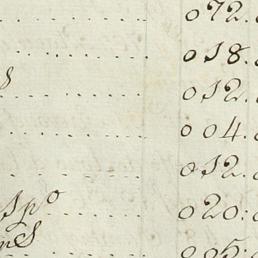 072.
018.
s 012.
004.
012.
spo 020:
ms 005.